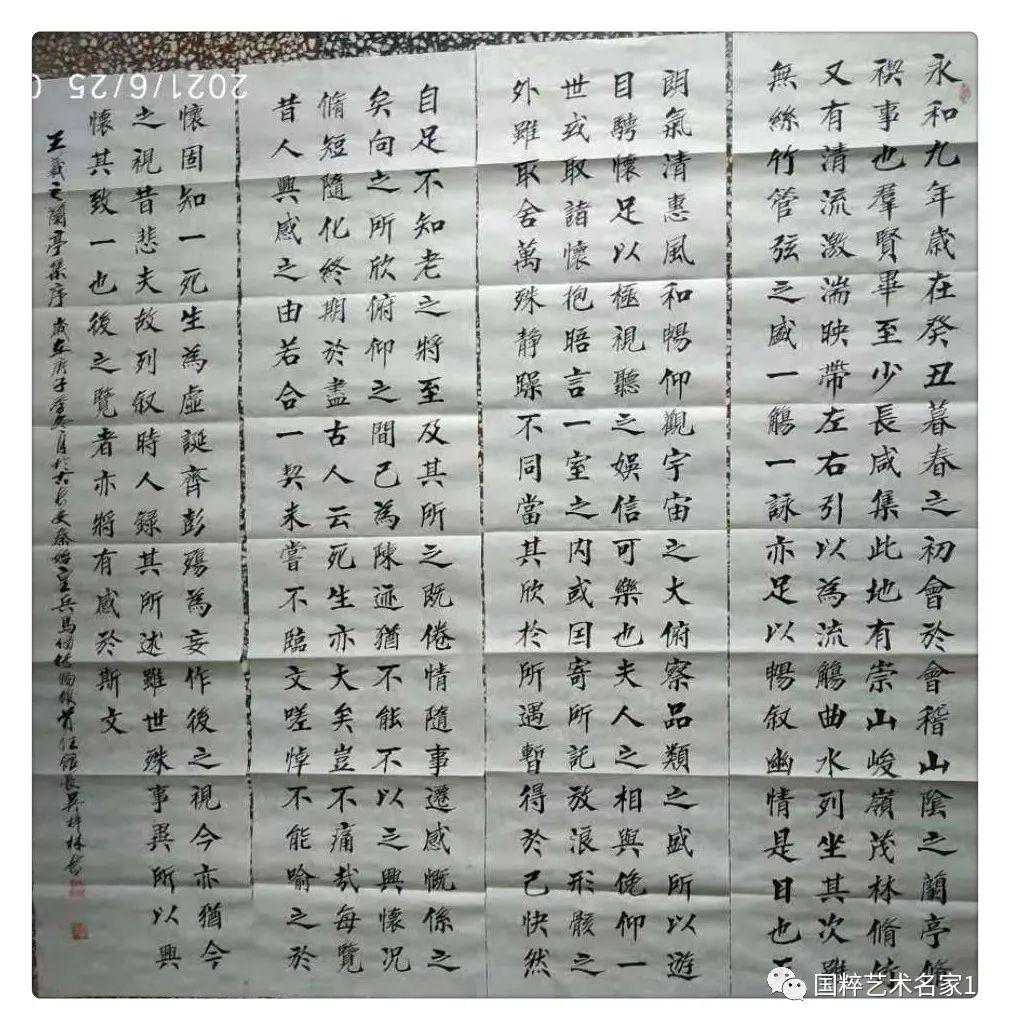 永和九年歲在癸丑暮春之初會於會稽山陰之蘭亭脩
禊事也羣賢畢至少長咸集此地有崇山峻嶺茂林脩竹
又有清流激湍映帶左右引以為流觴曲水列坐其次雖
無絲竹管弦之盛一觴一詠亦足以暢叙幽情是日也天
朗氣清惠風和暢仰觀宇宙之大俯察品類之盛所以遊
目騁懷足以極視聽之娛信可樂也夫人之相與俛仰一
世或取諸懷抱晤言一室之内或因寄所託放浪形骸之
外雖取舍萬殊静躁不同當其欣於所遇暫得於己快然
自足不知老之將至及其所之既倦情隨事遷感慨係之
矣向之所欣俯仰之間已為陳迹猶不能不以之興懷況
脩短隨化終期於盡古人云死生亦大矣豈不痛哉每覽
昔人興感之由若合一契未嘗不臨文嗟悼不能喻之於
懷固知一死生為虛誕齊彭殤為妄作後之視今亦猶今
之視昔悲夫故列叙時人録其所述雖世殊事異所以興
懷其致一也後之覽者亦將有感於斯文
王羲之蘭亭集序 歲在庚子
2021/6/25 0
国粹艺术名家1